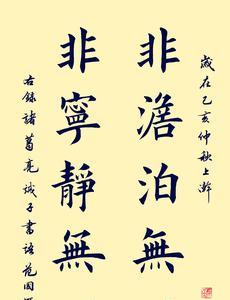 歲在乙亥仲秋上澣
非澹泊無
非寧靜無
右錄諸葛亮誡子書語範國